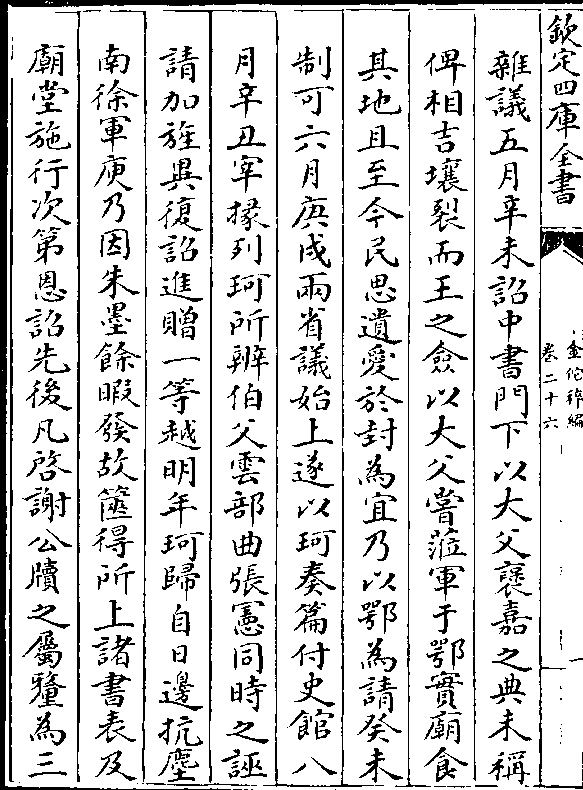 欽定四庫全書
金佗稡編
卷二十六
雜議五月辛未詔中書門下以大父褒嘉之典未稱
俾相吉壤裂而王之僉以大父嘗蒞軍于鄂實廟食
其地且至今民思遺愛於封為宜乃以鄂為請癸未
制可六月庚戌兩省議始上遂以珂奏篇付史館八
月辛丑宰掾列珂所辨伯父雲部曲張憲同時之誣
請加旌異復詔進贈一等越明年珂歸自日邊抗塵
南徐軍庾乃因朱墨餘暇發故篋得所上諸書表及
廟堂施行次第恩詔先後凡啓謝公牘之屬釐為三